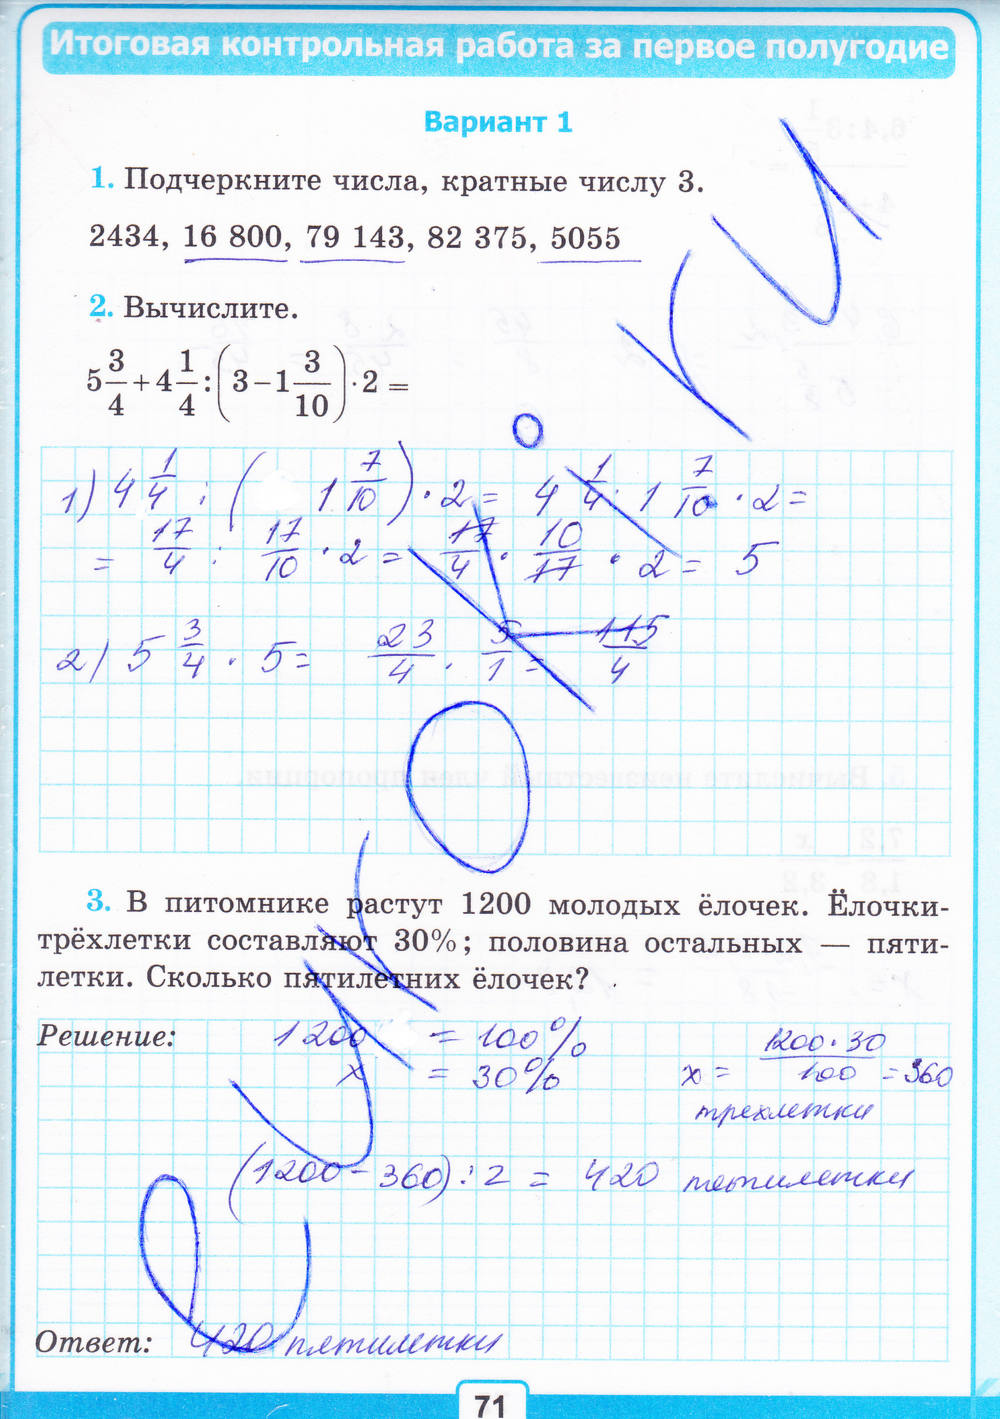 Итоговая контрольная работа за первое полугодие
Вариант 1
1. Подчеркните числа, кратные числу 3.
2434, 16 800, 79 143, 82 375, 5055
2. Вычислите.
5 3/4 + 4 1/4 : (3 − 1 3/10) · 2 =
1) 4 1/4 : ( 1 7/10 ) · 2 = 4 1/4 : 1 7/10 · 2 =
= 17/4 : 17/10 · 2 = 17/4 · 10/17 · 2 = 5
2) 5 3/4 · 5 = 23/4 · 5/1 = 115/4
3. В питомнике растут 1200 молодых ёлочек. Ёлочки-
трёхлетки составляют 30%; половина остальных — пяти-
летки. Сколько пятилетних ёлочек?
Решение: 1200 = 100%
x = 30% x = 1200·30/100 = 360
трехлетки
(1200 − 360) : 2 = 420 пятилетки
Ответ: 420 пятилетки
71